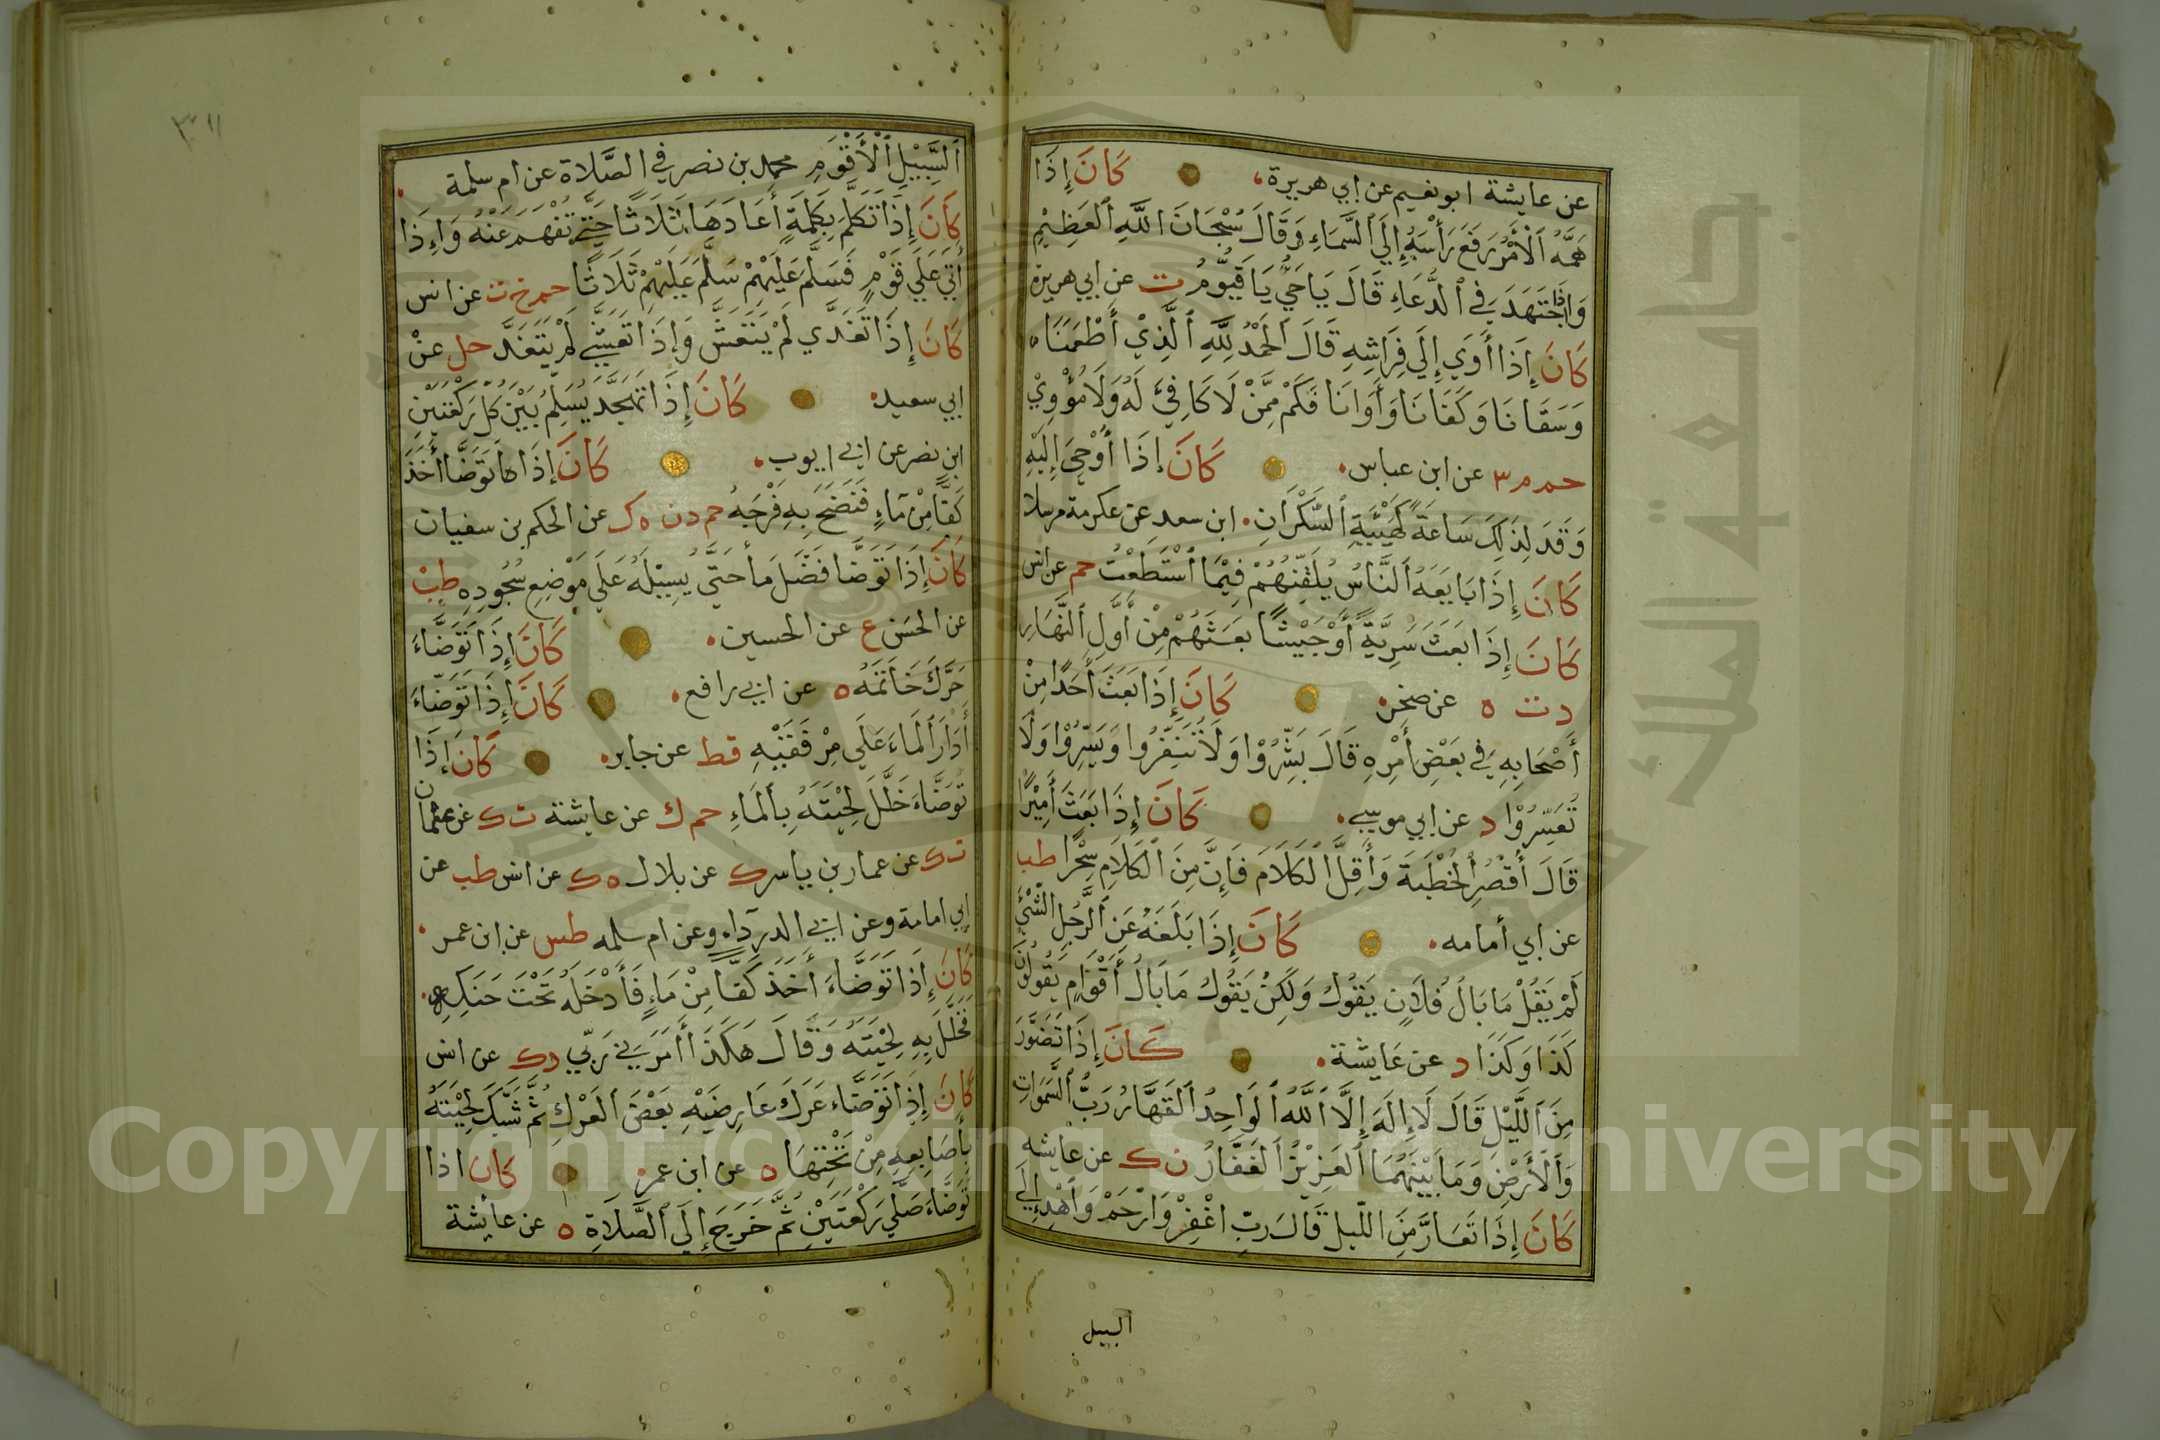 عن عايشة ابو نعيم عن ابي هريرة كَانَ إِذَا
هَمَّهُ ٱلْأَمْرُ رَفَعَ رَأْسَهُ إِلَى ٱلسَّمَاءِ وَقَالَ سُبْحَانَ ٱللَّهِ ٱلْعَظِيْمِ
وَإِذَا ٱجْتَهَدَ فِي ٱلدُّعَاءِ قَالَ يَا حَيُّ يَا قَيُّوْمُ ت عن ابي هريرة
كَانَ إِذَا أَوَي إِلَى فِرَاشِهِ قَالَ ٱلْحَمْدُ لِلَّهِ ٱلَّذِيْ أَطْعَمَنَا
وَسَقَانَا وَكَفَانَا وَأَوَانَا فَكَمْ مِمَّنْ لَا كَافِيَ لَهُ وَلَا مُؤْوِيْ
حم م ٣ عن ابن عباس كَانَ إِذَا أُوْحِيَ إِلَيْهِ
وَقَدَ لِذَلِكَ سَاعَةً كَهَيْئَةِ ٱلسَّكْرَانِ ابن سعد عن عكرمة مرسلا
كَانَ إِذَا بَايَعَهُ ٱلنَّاسُ يُلَقِّنُهُمْ فِيْمَا ٱسْتَطَعْتُ حم عن انس
كَانَ إِذَا بَعَثَ سَرِيَّةً أَوْ جَيْشًا بَعَثَهُمْ مِنْ أَوَّلِ ٱلنَّهَارِ
د ت ه عن صخر كَانَ إِذَا بَعَثَ أَحَدًا مِنْ
أَصْحَابِهِ فِي بَعْضِ أَمْرِهِ قَالَ بَشِّرُوْا وَلَا تُنَفِّرُوا وَيَسِّرُوْا وَلَا
تُعَسِّرُوْا د عن ابي موسى كَانَ إِذَا بَعَثَ أَمِيْرًا
قَالَ أَقْصُرِ ٱلْخُطْبَةَ وَأَقِلَّ ٱلْكَلَامَ فَإِنَّ مِنَ ٱلْكَلَامِ سِحْرًا طب
عن ابي أمامه كَانَ إِذَا بَلَغَهُ عَنِ ٱلرَّجُلِ الشَّيْءُ
لَمْ يَقُلْ مَا بَالُ فُلَانٍ يَقُولُ وَلَكِنْ يَقُولُ مَا بَالُ أَقْوَامٍ يَقُولُوْنَ
كَذَا وَكَذَا د عن عَايشة كَانَ إِذَا تَضَوَّرَ
مِنَ ٱللَّيْلِ قَالَ لَا إِلَهَ إِلَّا ٱللَّهُ ٱلْوَاحِدُ ٱلْقَهَّارُ رَبُّ ٱلسَّمَوَاتِ
وَٱلْأَرْضِ وَمَا بَيْنَهُمَا ٱلْعَزِيْزُ ٱلْغَفَّارُ ن ك عن عايشه
كَانَ إِذَا تَعَارَّ مِنَ اللَّيْلِ قَالَ رَبِّ اغْفِرْ وَارْحَمْ وَٱهْدِ إِلَي
السبيل
٣١١
ٱلسَّبِيْلِ ٱلْأَقْوَمِ محمد بن نصر في الصَّلَاة عن ام سلمة
كَانَ إِذَا تَكَلَّمَ بِكَلِمَةٍ أَعَادَهَا ثَلَاثًا حَتَّى تُفْهَمَ عَنْهُ وَإِذَا
أَتَى عَلَي قَوْمٍ فَسَلَّمَ عَلَيْهِمْ سَلَّمَ عَلَيْهِمْ ثَلَاثًا حم خ ت عن انس
كَانَ إِذَا تَغَدَّي لَمْ يَتَعَشَّ وَإِذَا تَعَشَّى لَمْ يَتَغَدَّ حل عن
ابي سعيد كَانَ إِذَا تَهَجَّدَ يُسَلِّمُ بَيْنَ كُلِّ رَكْعَتَيْنِ
ابن نصر عن ابي ايوب كَانَ إِذَا تَوَضَّأَ أَخَذَ
كَفًّا مِنْ مَاءٍ فَنَضَحَ بِهِ فَرْجَهُ حم د ن ه ك عن الحكم بن سفيان
كَانَ إِذَا تَوَضَّأَ فَضَلَ مَأ حَتَّى يُسِيْلَهُ عَلَي مَوْضِعِ سُجُودِهِ طب
عن الحَسَن ع عن الحسين كَانَ إِذَا تَوَضَّاءَ
حَرَّكَ خَاتَمَهُ ه عن ابي رافع كَانَ إِذَا تَوَضَّاءَ
أَدَارَ ٱلْمَاءَ عَلَى مِرْفَقَيْهِ قط عن جابر كَانَ إِذَا
تَوَضَّاءَ خَلَّلَ لِحْيَتَهُ بِٱلْمَاءِ حم ك عن عايشة ت ك عن عثمان
ت ك عن عمار بن ياسر ك عن بلال ه ك عن انس طب عن
ابي امامة وعن ابي الدرداء وعن ام سلمه طس عن ابن عمر
كَانَ إِذَا تَوَضَّاءَ أَخَذَ كَفًّا مِنْ مَاءٍ فَأَدْخَلَهُ تَحْتَ حَنَكِهِ
فَخَلَّلَ بِهِ لِحْيَتَهُ وَقَالَ هَكَذَا أَمَرَنِي رَبِّي د ك عن انس
كَانَ إِذَا تَوَضَّاءَ عَرَكَ عَارِضَيْهِ بَعْضَ ٱلْعَرْكِ ثُمَّ شَبَّكَ لِحْيَتَهُ
بِأَصَابِعِهِ مِنْ تَحْتِهَا ه عن ابن عمر كَانَ اذا
تَوَضَّاءَ صَلَّى رَكْعَتَيْنِ ثُمَّ خَرَجَ إِلَى ٱلصَّلَاةِ ه عن عايشة
جامعة الملك سعود
Copyright © King Saud University